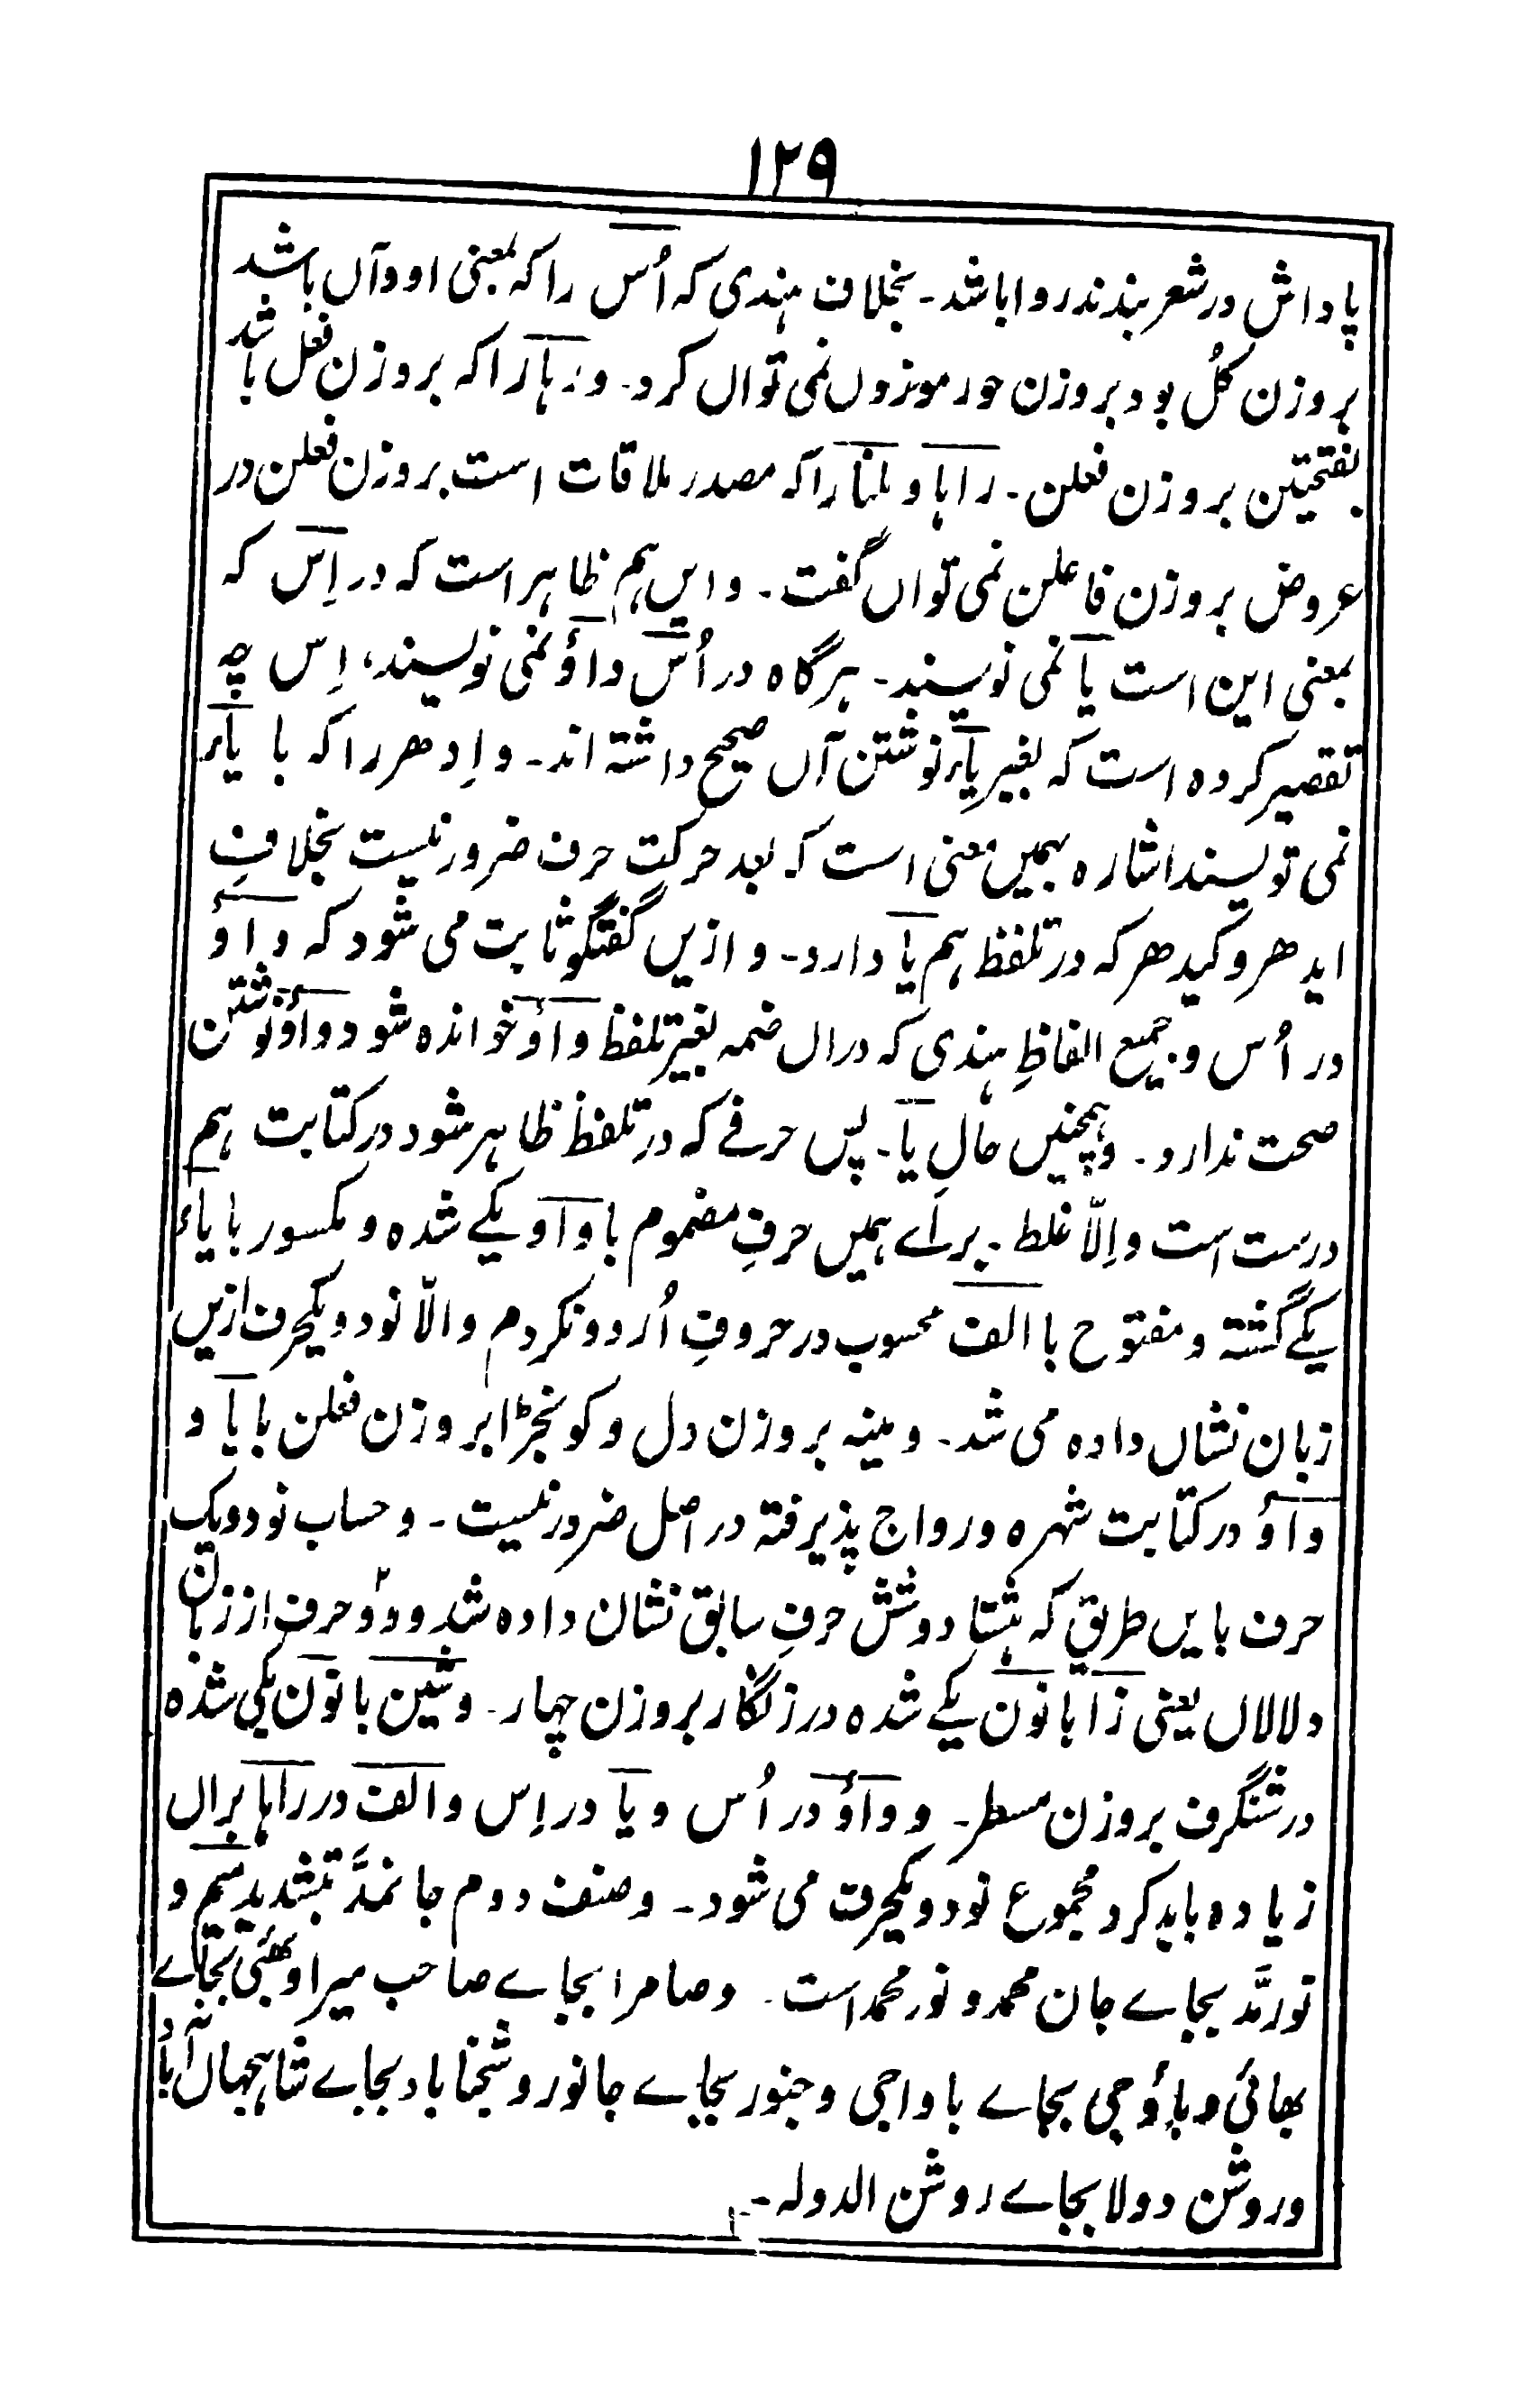 ۱۲۹
پاداش در شعر بندند روا باشد۔ بخلاف ہندی کہ اُس را کہ بمعنی او و آں باشد
بر وزن کُل بود بر وزن حور موزوں نمی تواں کرد۔ و رہا را کہ بر وزن فعل باشد
بفتحیتن بر وزن فعلن۔ راہا و ملنا را کہ مصدر ملاقات است بر وزن فعلن در
عروض بر وزن فاعلن نمی تواں گفت۔ و ایں ہم ظاہر است کہ در اِس کہ
بمعنی این است یا نمی نویسند۔ ہرگاہ در اُس واؤ نمی نویسند، اِس چہ
تقصیر کردہ است کہ بغیر یاء نوشتن آں صحیح داشتہ اند۔ و اِدھر را کہ با یاء
نمی نویسند اشارہ بہمیں معنی است کہ بعد حرکت حرف ضرور نیست بخلافِ
ایدھر و کیدھر کہ در تلفظ ہم یا دارد۔ و ازیں گفتگو ثابت می شود کہ واؤ
در اُس و جمیع الفاظِ ہندی کہ دراں ضمہ بغیر تلفظ واؤ خواندہ شود واؤ نوشتن
صحت ندارد۔ و ہمچنیں حالِ یا۔ پس حرفے کہ در تلفظ ظاہر شود در کتابت ہم
درست است و اِلّا غلط۔ براے ہمیں حرفِ مضموم با واو یکے شدہ و مکسور با یاء
یکے گشتہ و مفتوح با الف محسوب در حروفِ اُردو نکردم و الّا نود و یکحرف ازیں
زبان نشاں دادہ می شد۔ و مینہ بر وزن دل و کونجڑا بر وزن فعلن با یا و
واؤ در کتابت شہرہ و رواج پذیرفتہ در اصل ضرور نیست۔ و حساب نود و یک
حرف بایں طریق کہ ہشتاد و شش حرفِ سابق نشان دادہ شد و دو حرف از زبان
دلالاں یعنی زا با نون یکے شدہ در زنگار بر وزن چہار۔ و شین با نون یکی شدہ
در شنگرف بر وزن مسطر۔ و واؤ در اُس و یا در اِس و الف در راہا براں
زیادہ باید کرد مجموع نود و یکحرف می شود۔ و صنف دوم جانمَّد بتشدید میم و
نورمَّد بجاے جان محمد و نور محمد است۔ و صامرا بجاے صاحب میرا و بھئی بجاے
بھائی و باؤجی بجاے باواجی و جنور بجاے جانور و شجنا باد بجاے شاہجہاں آباد
و روشن دولا بجاے روشن الدولہ۔